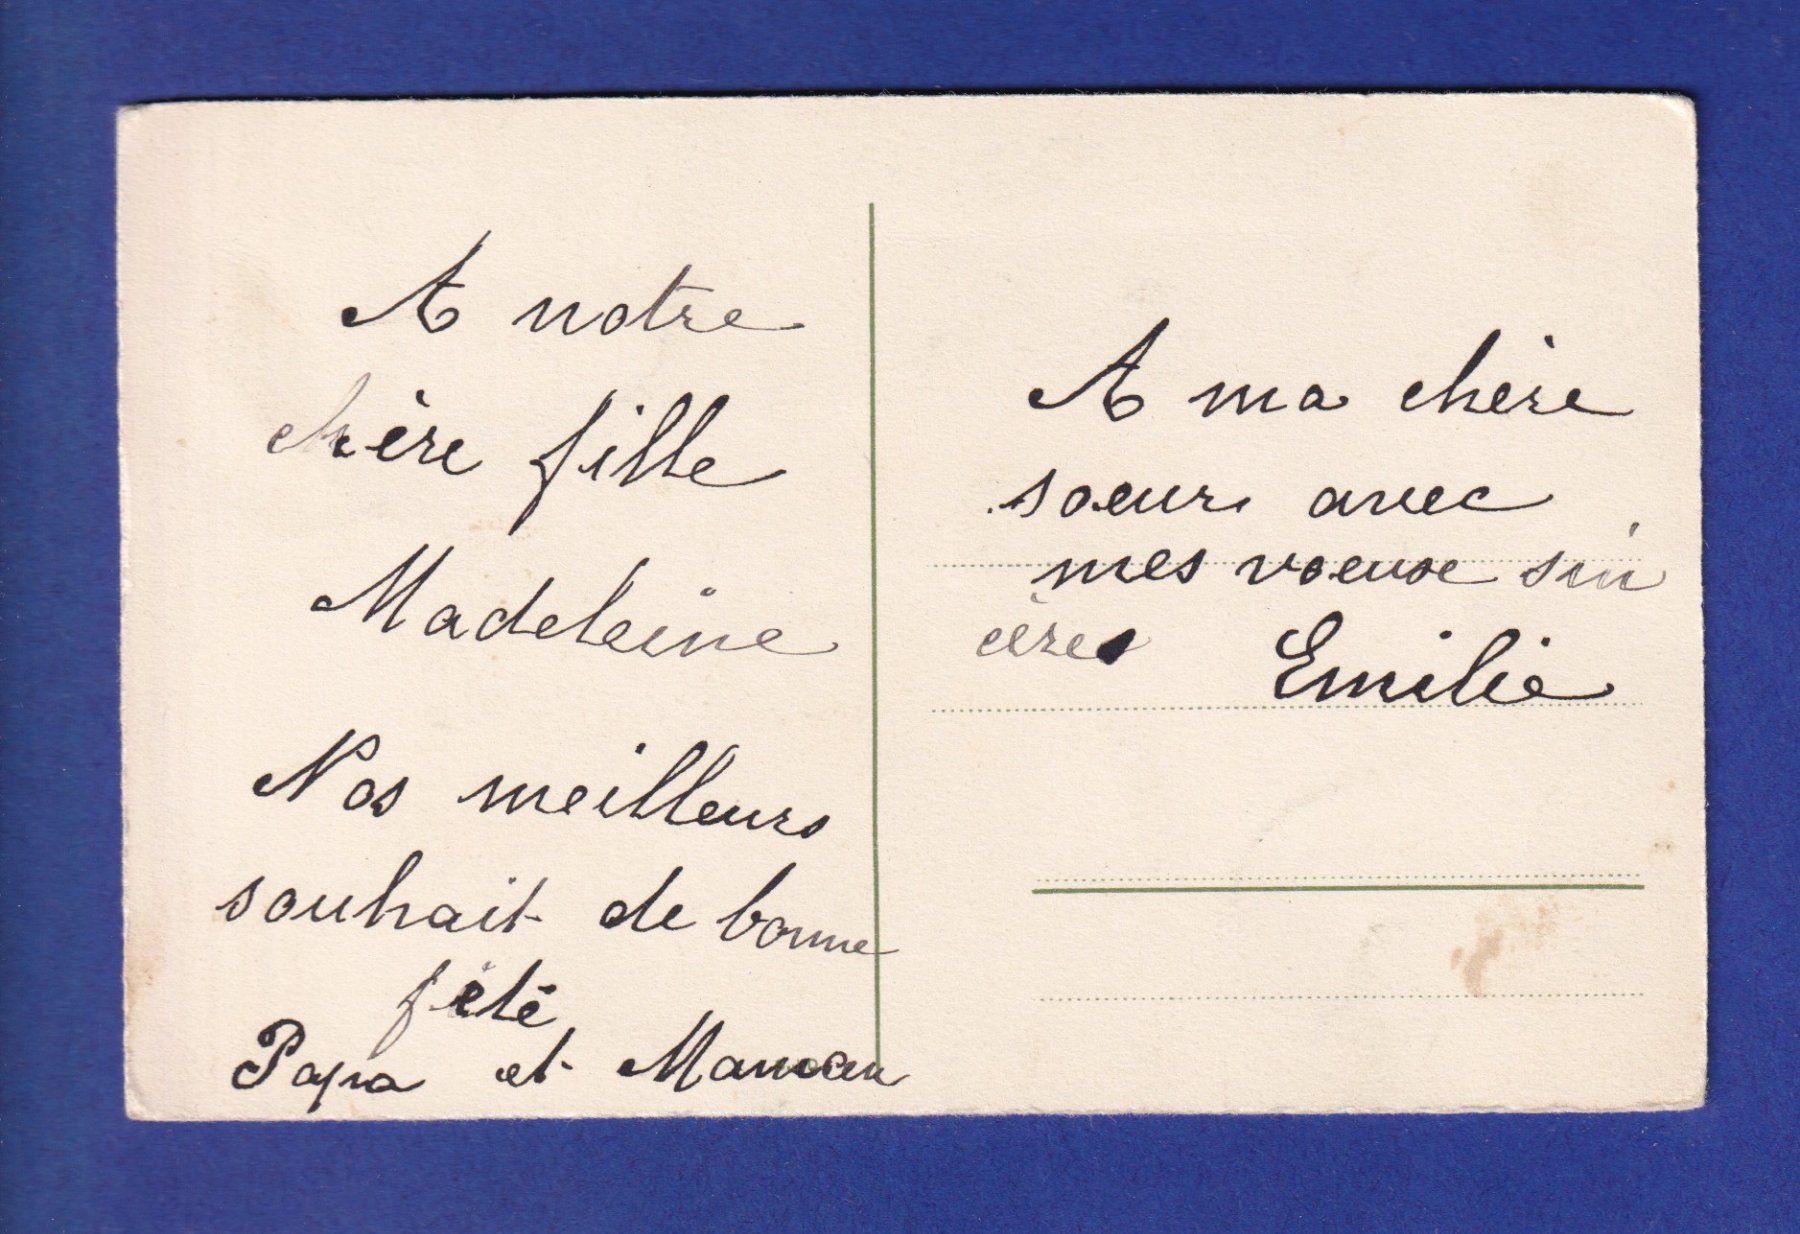 A notre
chère fille
Madeleine
Nos meilleurs
souhait de bonne
fête
Papa et Maman
A ma chère
soeur avec
mes voeux sin
cères Emilie